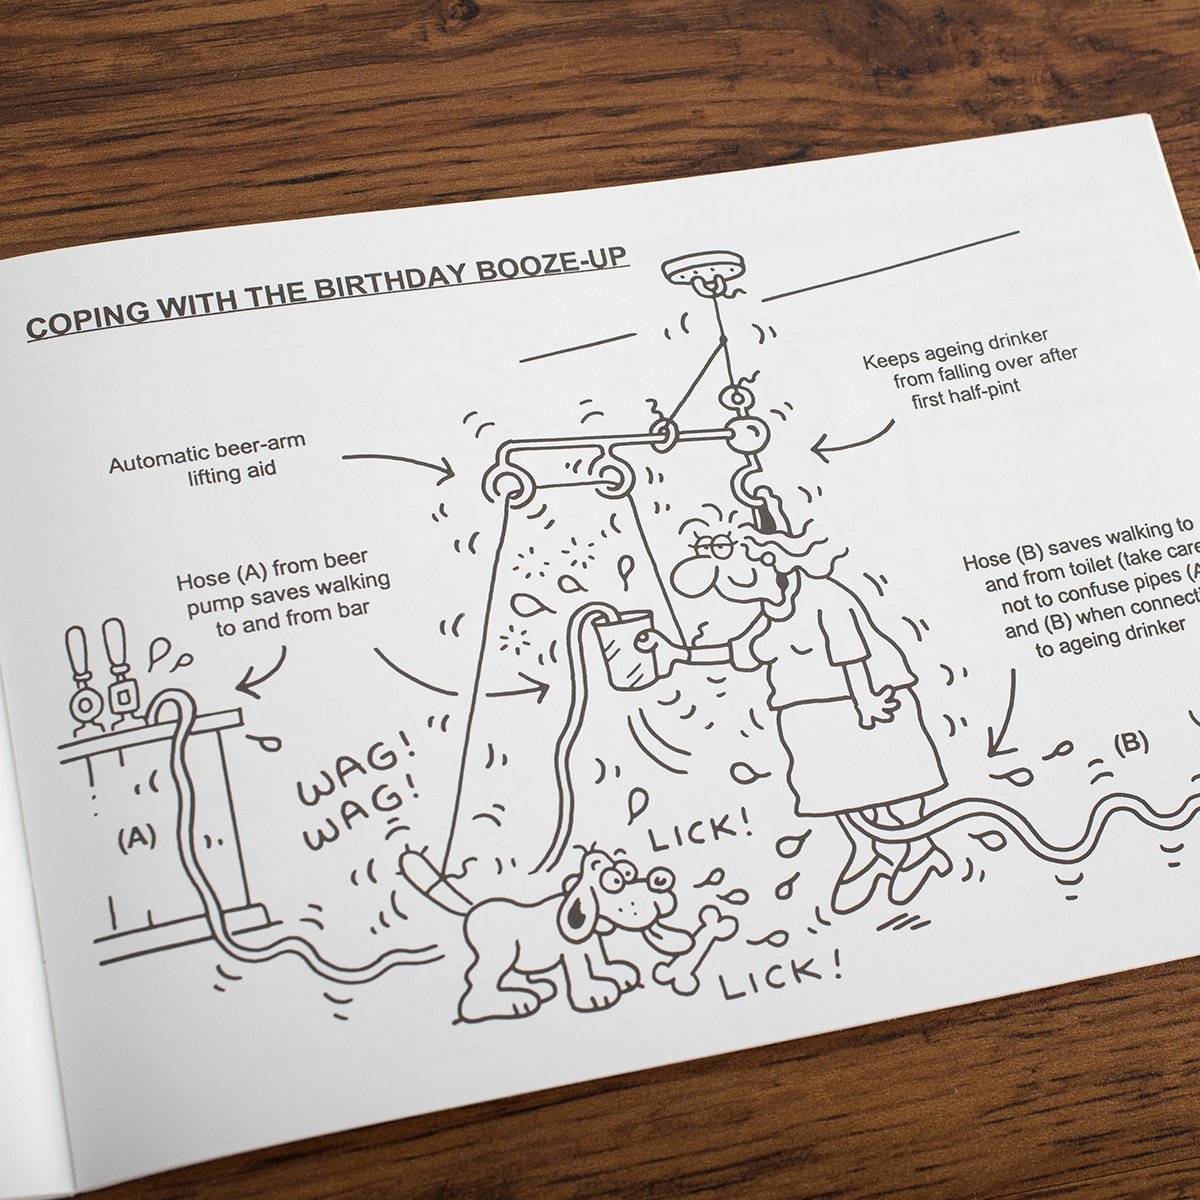 COPING WITH THE BIRTHDAY BOOZE-UP
Keeps ageing drinker
from falling over after
first half-pint
Automatic beer-arm
lifting aid
Hose (A) from beer
pump saves walking
to and from bar
Hose (B) saves walking to
and from toilet (take care
not to confuse pipes (A
and (B) when connecti
to ageing drinker
(B)
WAG!
WAG!
(A)
LICK!
LICK!